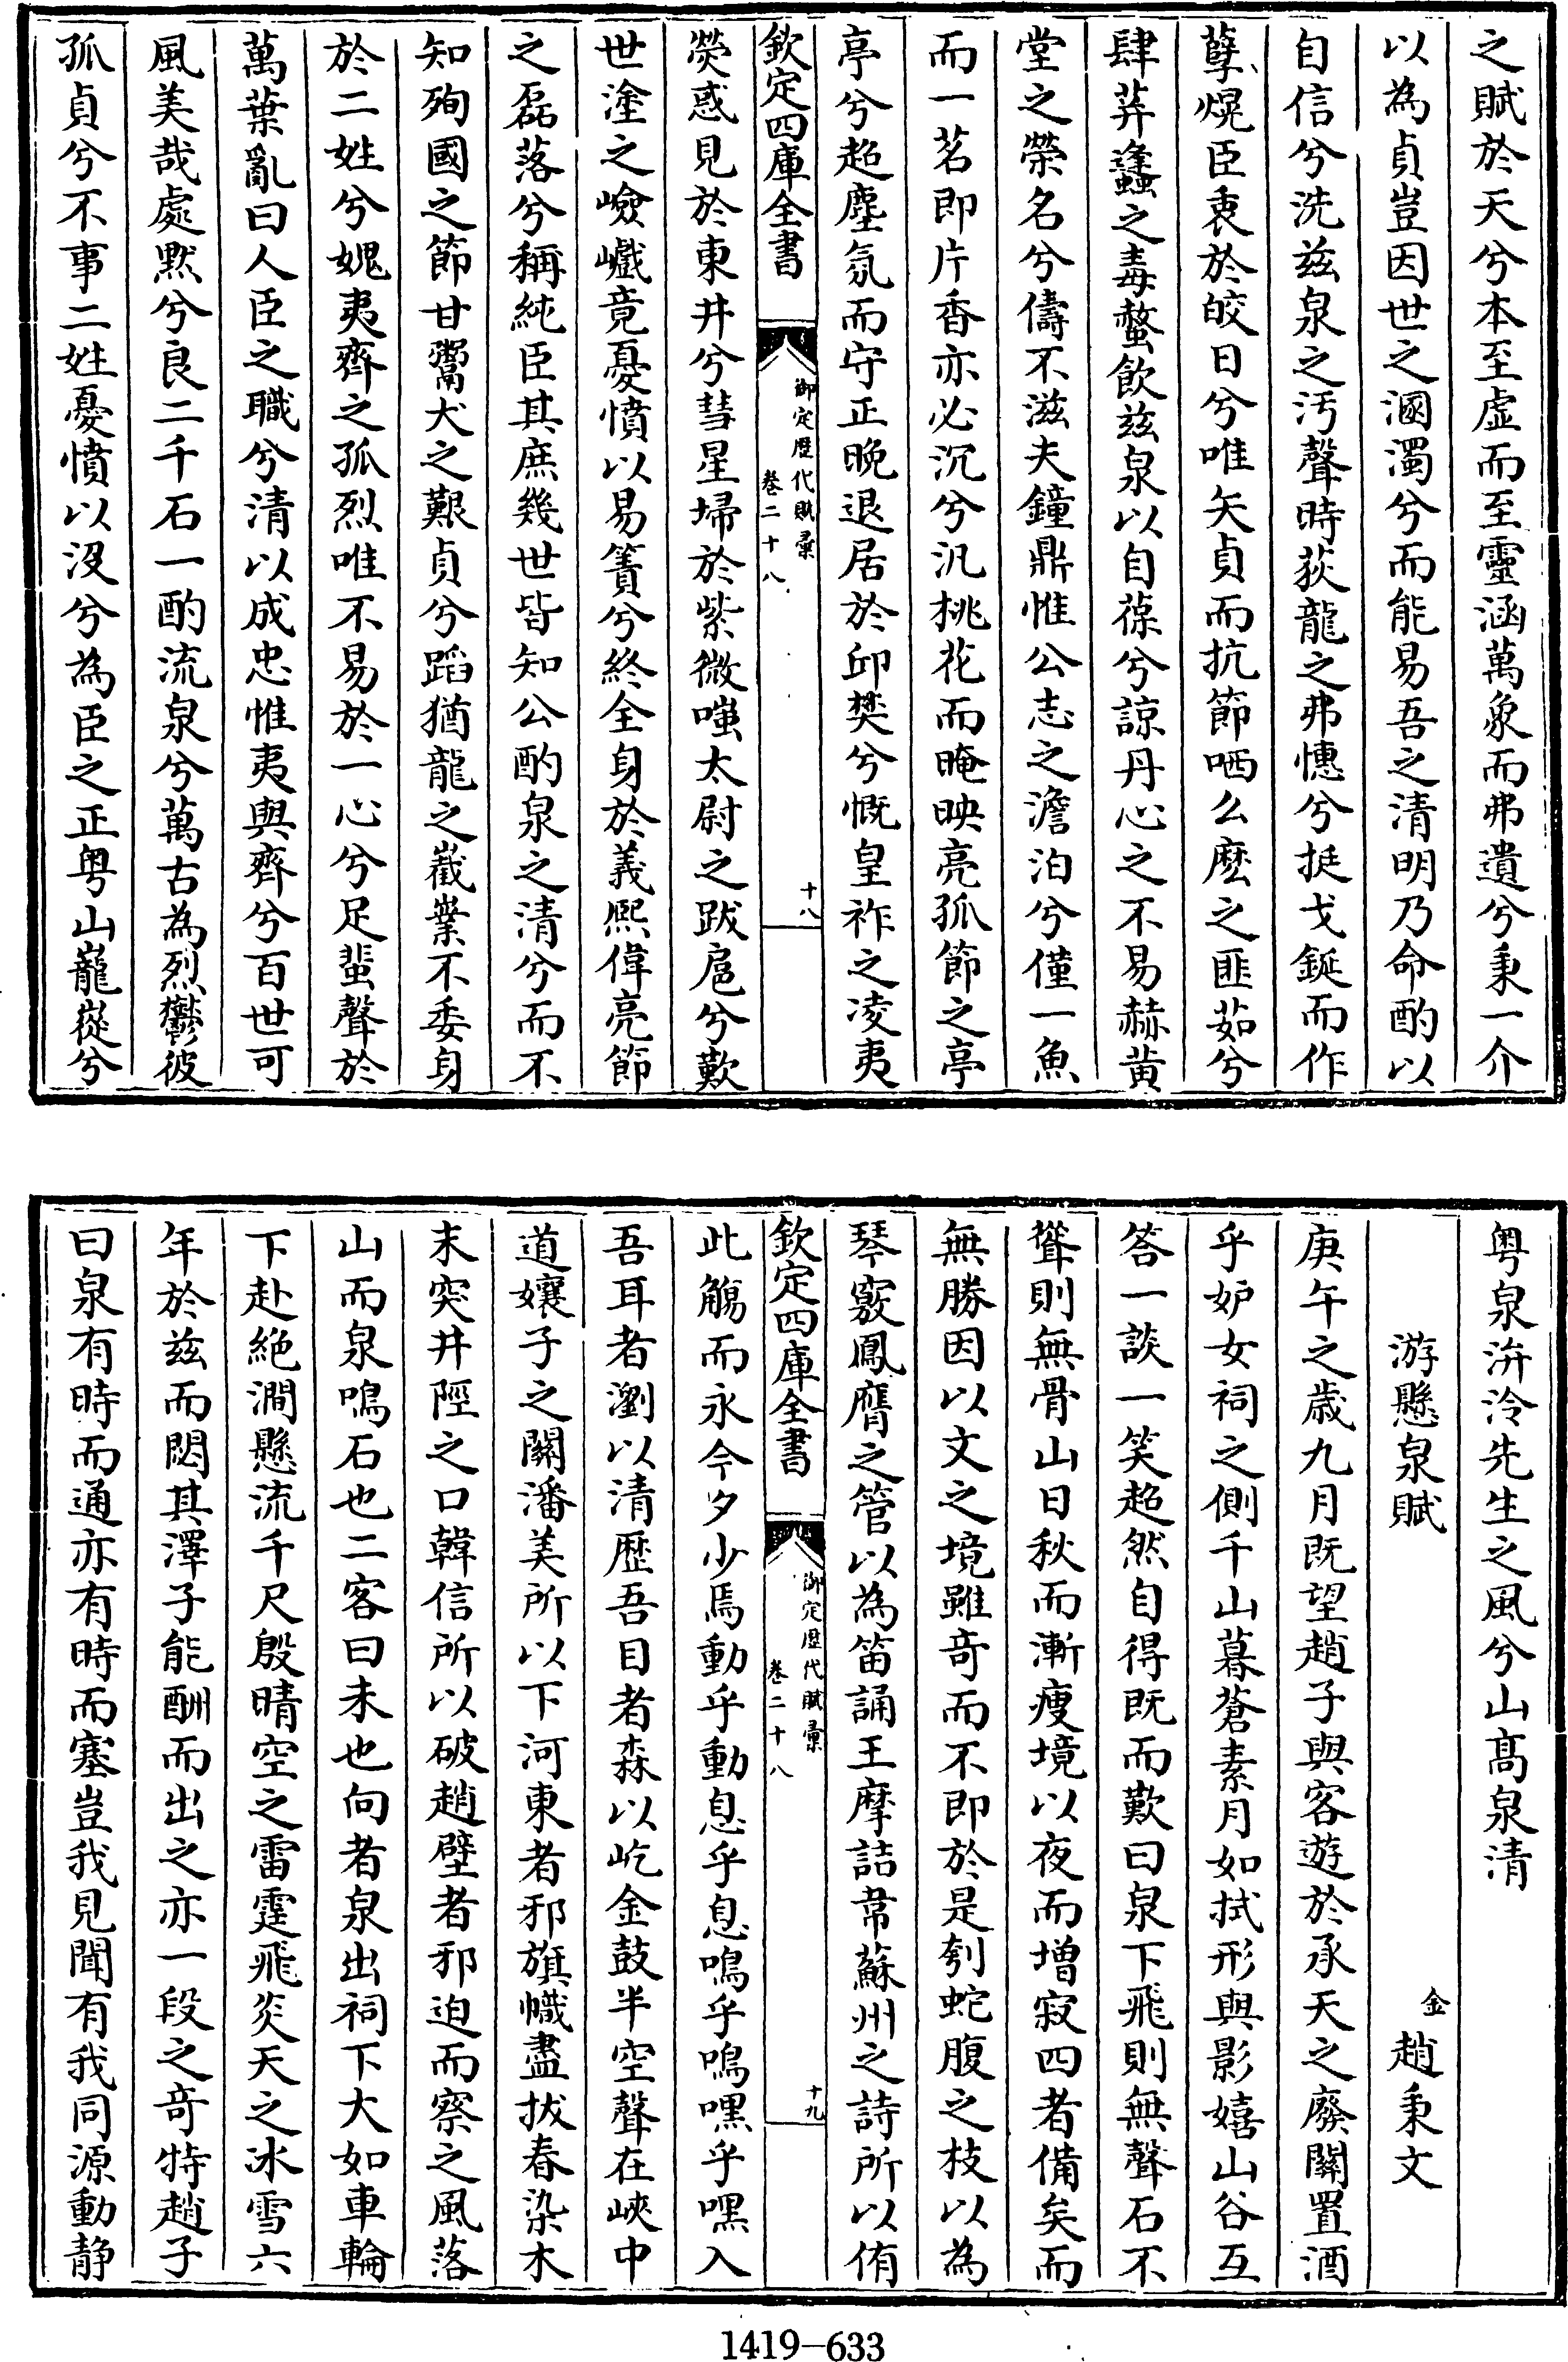 之賦於天兮本至虛而至靈涵萬象而弗遺兮秉一介
以為貞豈因世之溷濁兮而能易吾之清明乃命酌以
自信兮洗兹泉之汚聲時荻龍之弗憓兮挺戈鋋而作
孽熀臣衷於皎日兮唯矢貞而抗節哂么麽之匪茹兮
肆莽蠭之毒螫飲兹泉以自葆兮諒丹心之不易赫黄
堂之榮名兮儔不滋夫鐘鼎惟公志之澹泊兮僅一魚
而一茗即片香亦必沉兮汎桃花而晻映亮孤節之亭
亭兮超塵氛而守正晚退居於邱樊兮慨皇祚之凌夷
欽定四庫全書
御定歴代賦彚
卷二十八
十八
熒惑見於東井兮彗星埽於紫微嗤太尉之跋扈兮歎
世塗之嶮巇竟憂憤以易簀兮終全身於義熙偉亮節
之磊落兮稱純臣其庶幾世皆知公酌泉之清兮而不
知殉國之節甘鬻犬之艱貞兮蹈猶龍之嶻嶪不委身
於二姓兮媲夷齊之孤烈唯不易於一心兮足蜚聲於
萬葉亂曰人臣之職兮清以成忠惟夷與齊兮百世可
風美哉處黙兮良二千石一酌流泉兮萬古為烈鬱彼
孤貞兮不事二姓憂憤以沒兮為臣之正粤山巃嵸兮
粤泉洴泠先生之風兮山髙泉清
游懸泉賦
金 趙秉文
庚午之歳九月既望趙子與客遊於承天之廢闗置酒
乎妒女祠之側千山暮蒼素月如拭形與影嬉山谷互
答一談一笑超然自得既而歎曰泉下飛則無聲石不
聳則無骨山日秋而漸瘦境以夜而增寂四者備矣而
無勝因以文之境雖竒而不即於是刳蛇腹之枝以為
琴竅鳳膺之管以為笛誦王摩詰韋蘇州之詩所以侑
欽定四庫全書
御定歴代賦彚
卷二十八
十九
此觴而永今夕少焉動乎動息乎息鳴乎鳴嘿乎嘿入
吾耳者瀏以清歴吾目者森以屹金鼓半空聲在峽中
道孃子之闗潘美所以下河東者邪旗幟盡拔春染木
末突井陘之口韓信所以破趙壁者邪迫而察之風落
山而泉鳴石也二客曰未也向者泉出祠下大如車輪
下赴絶澗懸流千尺殷晴空之雷霆飛炎天之氷雪六
年於兹而閟其澤子能酬而出之亦一段之竒特趙子
曰泉有時而通亦有時而塞豈我見聞有我同源動静
1419-633